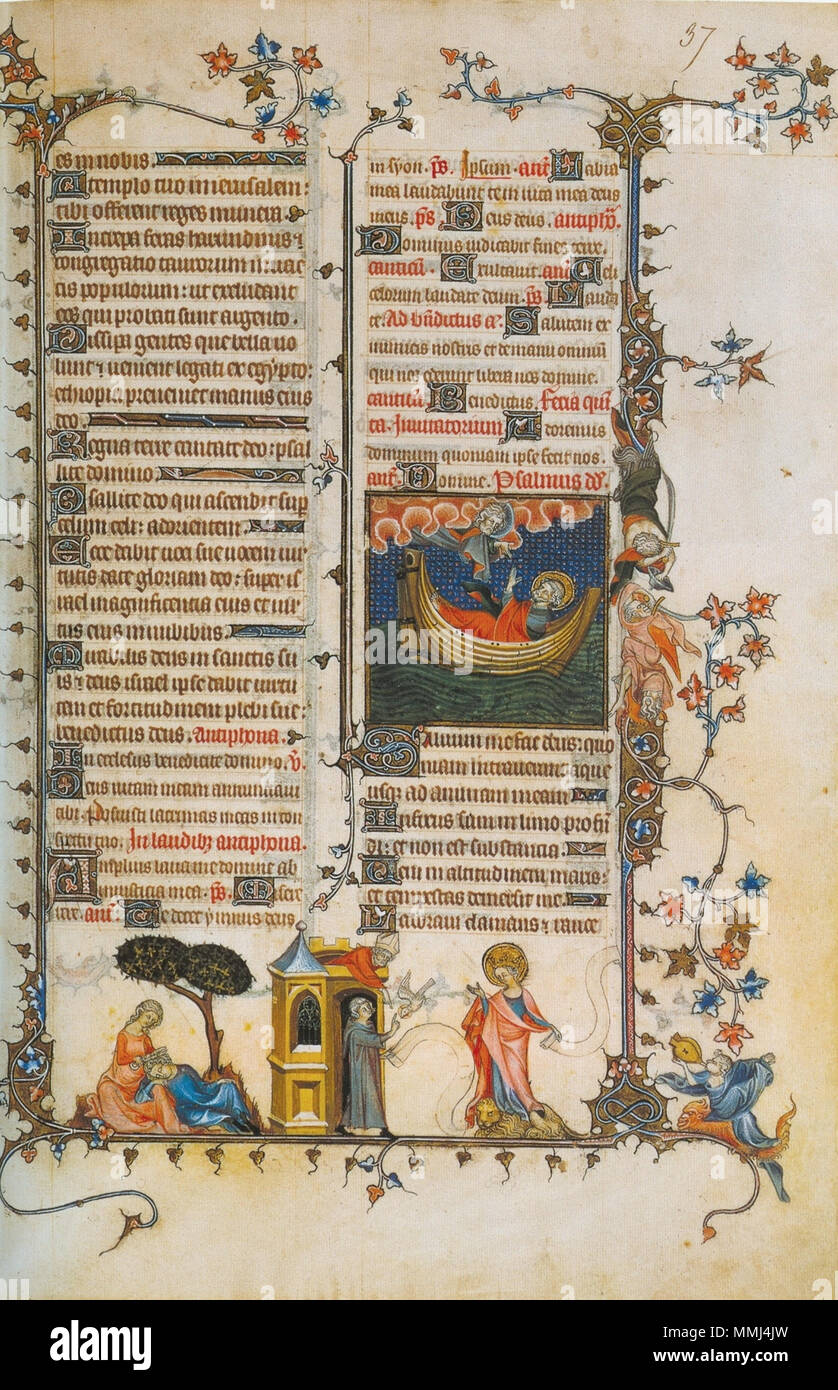 37
es in nobis.
A templo tuo in ierusalem:
tibi offerent reges munera.
Increpa feras harundinis ⁊
congregatio taurorum in uac
cis populorum: ut excludant
eos qui probati sunt argento.
Dissipa gentes que bella uo
lunt ⁊ uenient legati ex egypto:
ethiopia preueniet manus eius
deo.
Regna terre cantate deo: psal
lite domino
Psallite deo qui ascendit sup
celum celi: ad orientem.
Ecce dabit uoci sue uocem uir
tutis date gloriam deo: super is
rael magnificentia eius et uir
tus eius in nubibus.
Mirabilis deus in sanctis su
is ⁊ deus israel ipse dabit uirtu
tem et fortitudinem plebi sue:
benedictus deus. Antiphona.
In ecclesiis benedicite domino. V.
Deus uitam meam annunciaui
tibi. Posuisti lacrimas meas in con
spectu tuo. In laudibus antiphona.
Amplius laua me domine ab
iniusticia mea. ps. Misere
re. ant. Te decet ymnus deus
in syon. ps. Ipsum. ant. Labia
mea laudabunt te in uita mea deus
meus. ps. Deus deus. antipho.
Dominus iudicabit fines terre.
canticum. Exultauit. ant. Celi
celorum laudate deum. ps. Lauda
te. Ad benedictus
Salutem ex
inimicis nostris et de manu omnium
qui nos oderunt libera nos domine.
canticum. Benedictus. Feria quin
ta. Inuitatorium. Adoremus
dominum quoniam ipse fecit nos.
ant. Domine. Psalmus dd.
Saluum me fac deus: quo
niam intrauerunt aque
usque ad animam meam
Infixus sum in limo profun
di: et non est substancia.
Veni in altitudinem maris:
et tempestas demersit me.
Laboraui clamans ⁊ rauce
alamy
Image ID: MMJ4JW
www.alamy.com